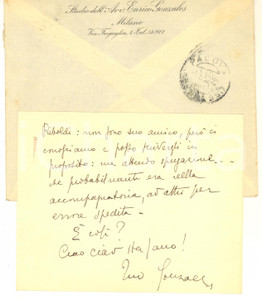 Studio dell'Avv. Enrico Gonzales
Milano
Riboldi: non sono suo amico, però ci
conosciamo e posso scrivergli in
proposito: ma attendo spiegazione
che probabilmente era nella
accompagnatoria, ad altri per
errore spedita -
È così?
Ciao ciao
Tuo Gonzales